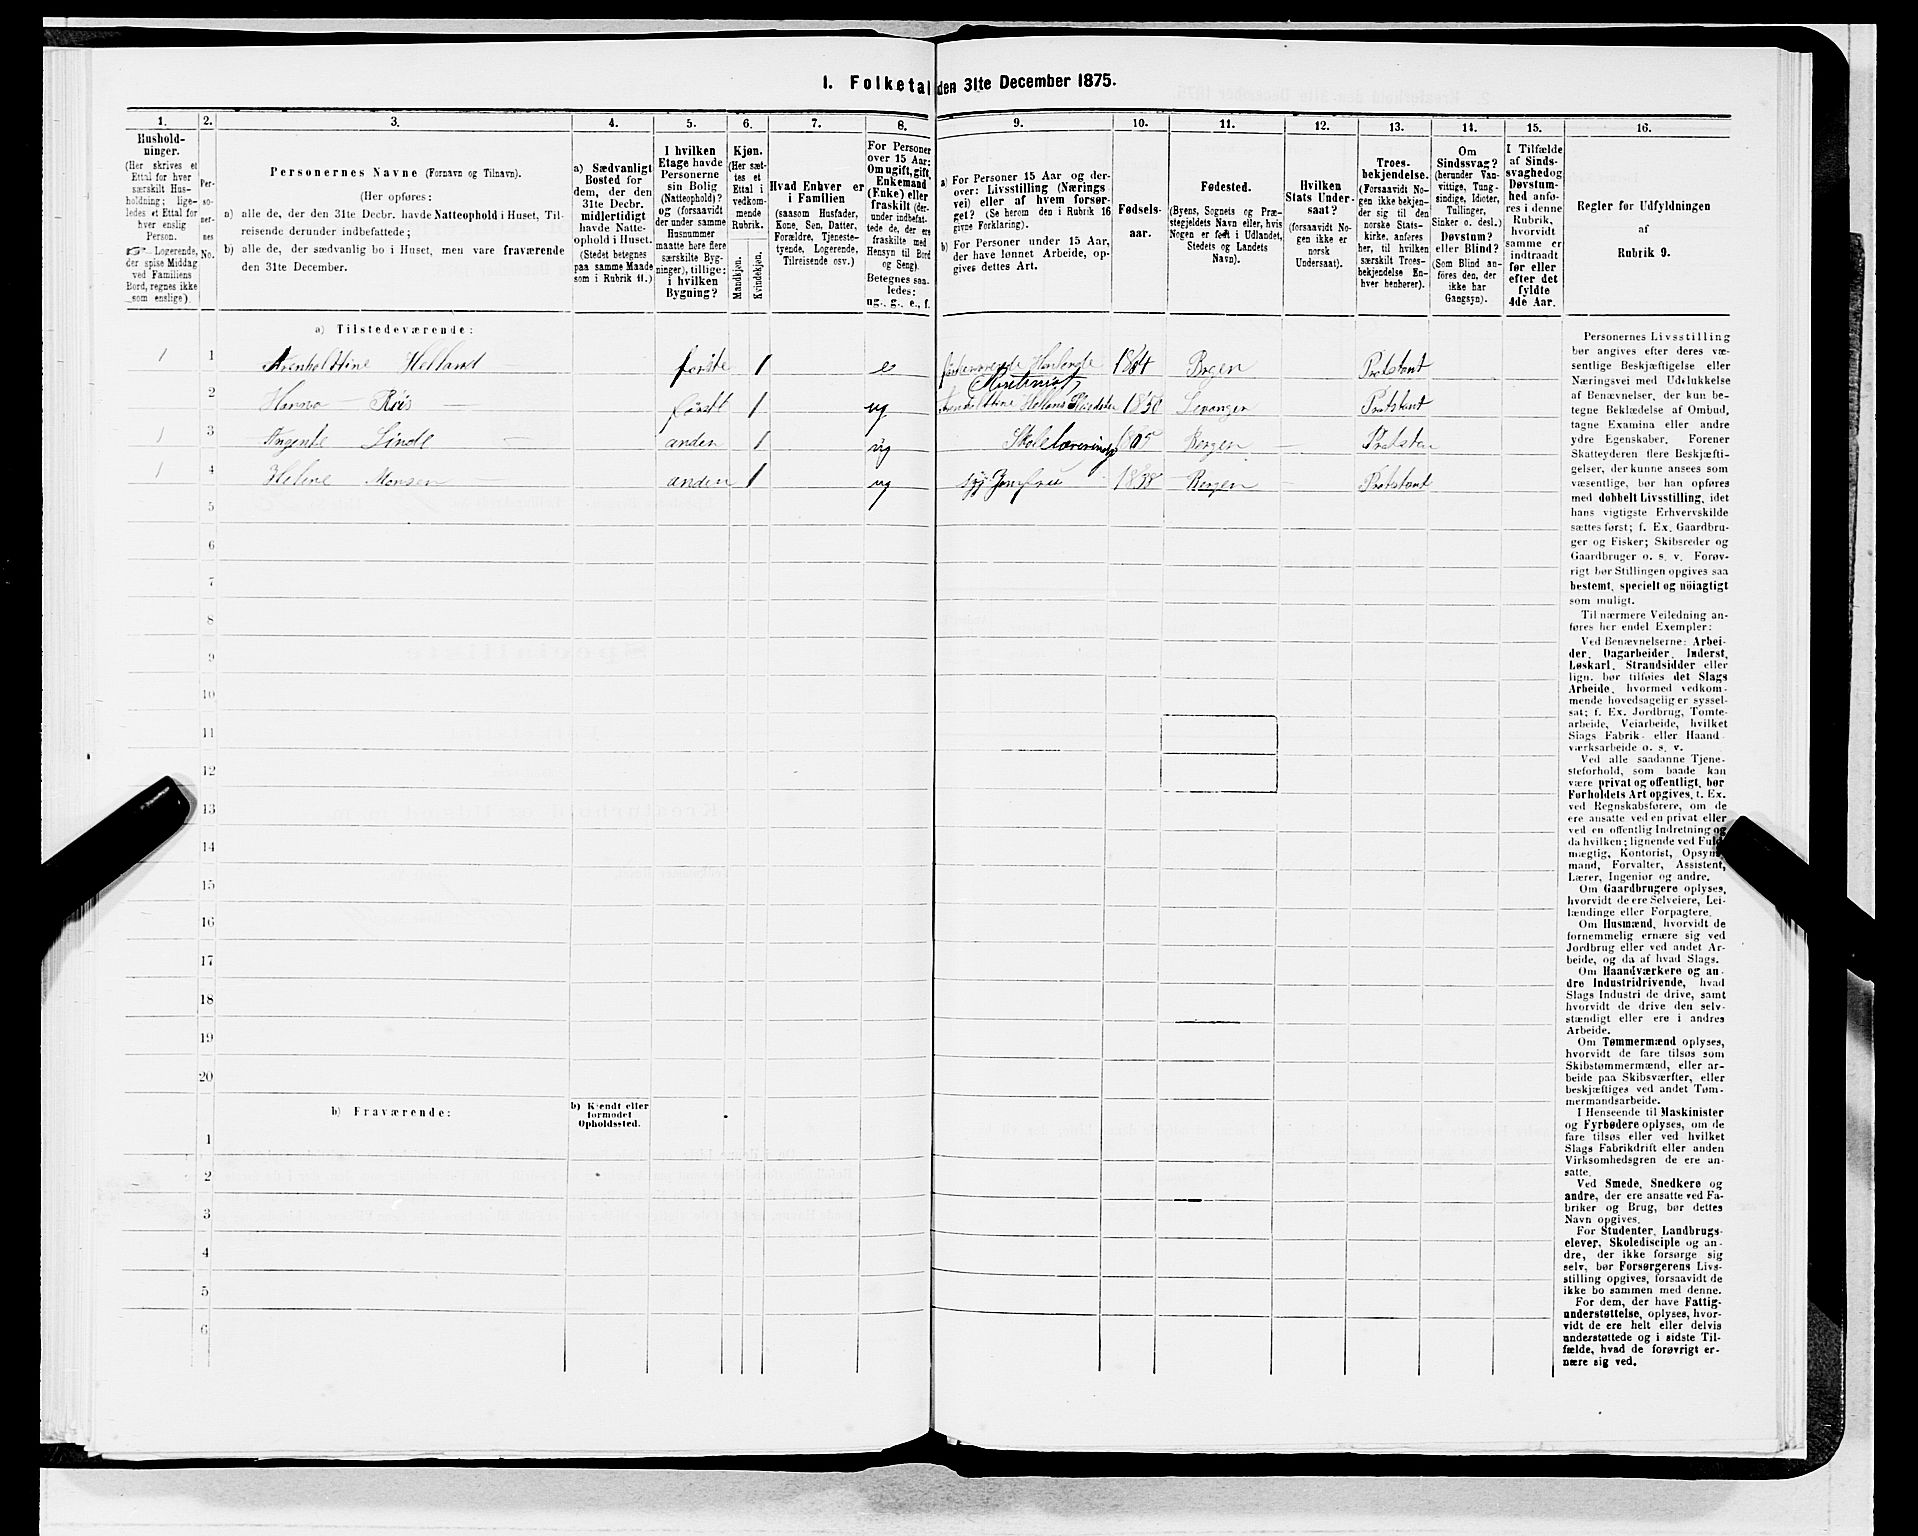 1. Folketal den 31te December 1875.
1.
Hushold-
ninger.
(Her skrives et
Ettal for hver
særskilt Hus-
holdning; lige-
ledes et Ettal for
hver enslig
Person.
☞ Logerende,
der spise Middag
ved Familiens
Bord, regnes ikke
som enslige).
2.
Per-
so-
ner-
nes
No.
3.
Personernes Navne (Fornavn og Tilnavn).
(Her opføres:
a) alle de, der den 31te Decbr. havde Natteophold i Huset, Til-
reisende derunder indbefattede;
b) alle de, der sædvanlig bo i Huset, men vare fraværende
den 31te December.
4.
a) Sædvanligt
Bosted for
dem, der den
31te Decbr.
midlertidigt
havde Natte-
ophold i Huset.
(Stedet betegnes
paa samme Maade
som i Rubrik 11.)
5.
I hvilken
Etage havde
Personerne
sin Bolig
(Natteophold)?
og (forsaavidt
der under samme
Husnummer
maatte høre flere
særskilte Byg-
ninger), tillige:
i hvilken
Bygning?
6.
Kjøn.
(Her sæt-
tes et
Ettal i
vedkom-
mende
Rubrik.
Mandkjøn.
Kvindekjøn.
7.
Hvad Enhver er
i Familien
(saasom Husfader,
Kone, Søn, Datter,
Forældre, Tjeneste-
tyende, Logerende,
Tilreisende osv.)
8.
For Personer
over 15 Aar:
Om ugift, gift,
Enkemand
(Enke) eller
fraskilt (der-
under indbefat-
tede de, der ere
fraskilte med
Hensyn til Bord
og Seng).
Betegnes saa-
ledes:
ug., g., e., f.
9.
a) For Personer 15 Aar og der-
over: Livsstilling (Nærings-
vei) eller af hvem forsør-
get? (Se herom den i Rubrik 16
givne Forklaring).
b) For Personer under 15 Aar,
der have lønnet Arbeide, op-
gives dettes Art.
10.
Fødsels-
aar.
11.
Fødested.
(Byens, Sognets og Præ-
stegjeldets Navn eller, hvis
Nogen er født i Udlandet,
Stedets og Landets
Navn).
12.
Hvilken
Stats Under-
saat?
(forsaavidt No-
gen ikke er
norsk
Undersaat).
13.
Troes-
bekjendelse.
(Forsaavidt No-
gen ikke bekjen-
der sig til den
norske Stats-
kirke, anføres
her, til hvilken
særskilt Troes-
bekjendelse En-
hver henhører).
14.
Om
Sindssvag?
(herunder Van-
vittige, Tung-
sindige, Idioter,
Tullinger,
Sinker o. desl.)
Døvstum?
eller Blind?
(Som Blind an-
føres den, der
ikke har
Gangsyn).
15.
I Tilfælde
af Sinds-
svaghed og
Døvstum-
hed anfø-
res i denne
Rubrik,
hvorvidt
samme er
indtraadt
før eller
efter det
fyldte
4de Aar.
16.
Regler for Udfyldningen
af
Rubrik 9.
a) Tilstedeværende:
1 1 Helland første 1 e 1814 Bergen Protstant
2 Hanna Riis første 1 ug 1850 Levanger Protstant
1 3 Linde anden 1 ug Skolelærerinde Bergen Protstan
1 4 Helene Monsen anden 1 ug syg Jomfru 1838 Bergen Protstant
5
6
7
8
9
10
11
12
13
14
15
16
17
18
19
20
b) Fraværende:
b) Kjendt eller
formodet
Opholdssted.
1
2
3
4
5
6
Personernes Livsstilling
bør angives efter deres væ-
sentlige Beskjæftigelse eller
Næringsvei med Udelukkelse
af Benævnelser, der kun be-
tegne Beklædelse af Ombud,
tagne Examina eller andre
ydre Egenskaber. Forener
Skatteyderen flere Beskjæfti-
gelser, der kunne ansees som
væsentlige, bør han opføres
med dobbelt Livsstilling, idet
hans vigtigste Erhvervskilde
sættes først; f. Ex. Gaardbru-
ger og Fisker; Skibsreder og
Gaardbruger o. s. v. Forøv-
rigt bør Stillingen opgives saa
bestemt, specielt og nöiagtigt
som muligt.
Til nærmere Veiledning an-
føres her endel Exempler:
Ved Benævnelserne: Arbei-
der, Dagarbeider, Inderst,
Løskarl, Strandsidder eller
lign. bør tilføies det Slags
Arbeide, hvormed vedkom-
mende hovedsagelig er syssel-
sat; f. Ex. Jordbrug, Tomte-
arbeide, Veiarbeide, hvilket
Slags Fabrik- eller Haand-
værksarbeide o. s. v.
Ved alle saadanne Tjene-
steforhold, som baade kan
være privat og offentligt, bør
Forholdets Art opgives, f. Ex.
ved Regnskabsførere, om de
ere ansatte ved en privat eller
ved en offentlig Indretning og
da hvilken; lignende ved Fuld-
mægtig, Kontorist, Opsyns-
mand, Forvalter, Assistent,
Lærer, Ingeniør og andre.
Om Gaardbrugere oplyses,
hvorvidt de ere Selveiere, Lei-
lændinge eller Forpagtere.
Om Husmænd, hvorvidt de
fornemmelig ernære sig ved
Jordbrug eller ved andet Ar-
beide, og da af hvad Slags.
Om Haandværkere og an-
dre Industridrivende, hvad
Slags Industri de drive, samt
hvorvidt de drive den selv-
stændigt eller ere i andres
Arbeide.
Om Tømmermænd oplyses,
hvorvidt de fare tilsøs som
Skibstømmermænd, eller ar-
beide paa Skibsværfter, eller
beskjæftiges ved andet Tøm-
mermandsarbeide.
I Henseende til Maskinister
og Fyrbødere oplyses, om de
fare tilsøs eller ved hvilket
Slags Fabrikdrift eller anden
Virksomhedsgren de ere an-
satte.
Ved Smede, Snedkere og
andre, der ere ansatte ved Fa-
briker og Brug, bør dettes
Navn opgives.
For Studenter, Landbrugs-
elever, Skoledisciple og an-
dre, der ikke forsørge sig
selv, bør Forsørgerens Livs-
stilling opgives, forsaavidt de
ikke bo sammen med denne.
For dem, der have Fattig-
understøttelse, oplyses, hvor-
vidt de ere helt eller delvis
understøttede og i sidste Til-
fælde, hvad de forøvrigt er-
nære sig ved.